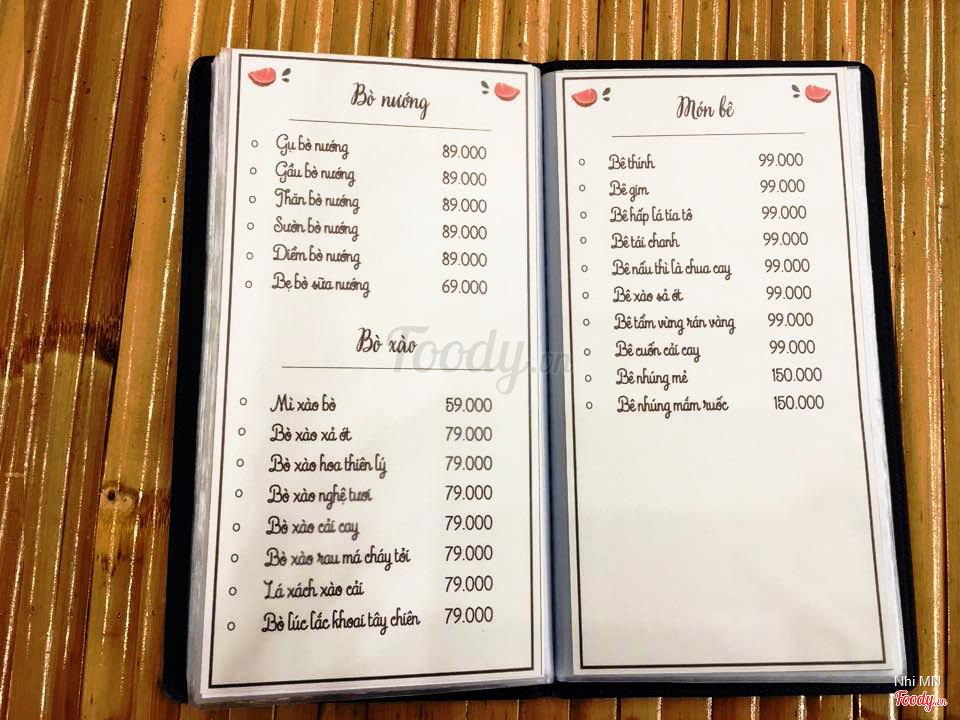 Bò nướng
Gụ bò nướng 89.000
Gầu bò nướng 89.000
Thăn bò nướng 89.000
Sườn bò nướng 89.000
Diềm bò nướng 89.000
Bẹ bò sữa nướng 69.000
Bò xào
Mì xào bò 59.000
Bò xào xả ớt 79.000
Bò xào hoa thiên lý 79.000
Bò xào nghệ tươi 79.000
Bò xào cải cay 79.000
Bò xào rau má cháy tỏi 79.000
Lá xách xào cải 79.000
Bò lúc lắc khoai tây chiên 79.000
Món bê
Bê thính 99.000
Bê gim 99.000
Bê hấp lá tía tô 99.000
Bê tái chanh 99.000
Bê nấu thì là chua cay 99.000
Bê xào sả ớt 99.000
Bê tẩm vừng rán vàng 99.000
Bê cuốn cải cay 99.000
Bê nhúng mẻ 150.000
Bê nhúng mắm ruốc 150.000
Foody.vn
Nhi MN
Foody.vn